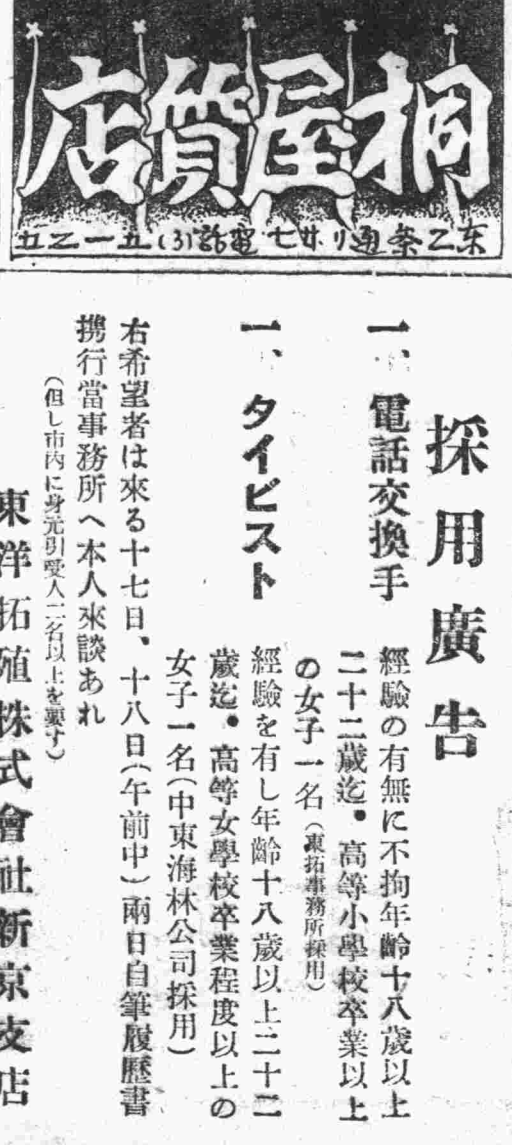 桐屋質店
東乙条通リ廿七 電話(3)五一乙五
採用廣告
一、電話交換手
經驗の有無に不拘年齡十八歲以上
二十二歲迄・高等小學校卒業以上
の女子一名(東拓事務所採用)
一、タイピスト
經驗を有し年齡十八歲以上二十二
歲迄・高等女學校卒業程度以上の
女子一名(中東海林公司採用)
右希望者は來る十七日、十八日(午前中)兩日自筆履歷書
携行當事務所へ本人來談あれ
(但し市内に身元引受人二名以上を要す)
東洋拓殖株式會社新京支店